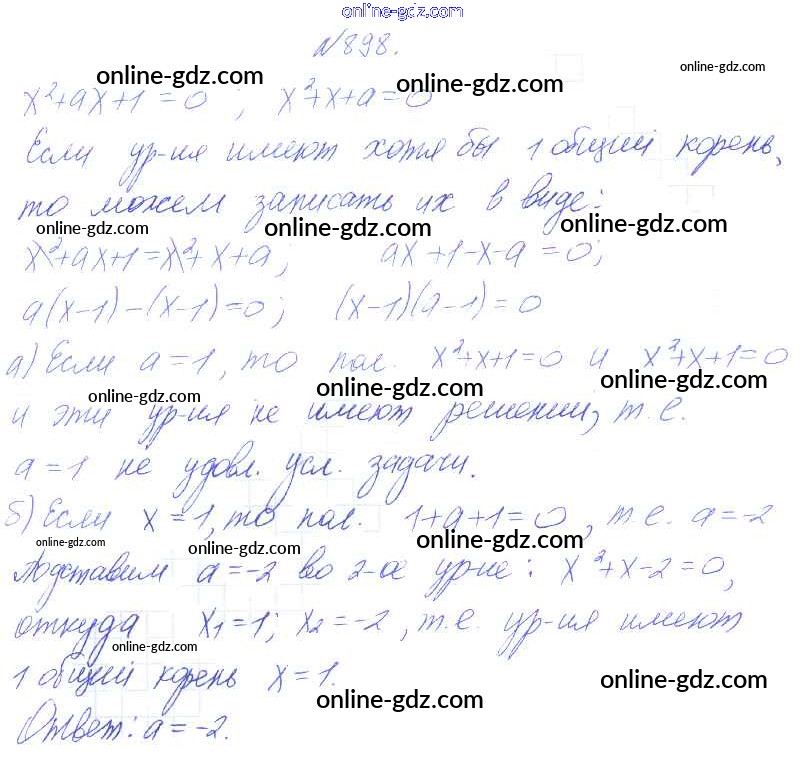 online-gdz.com
№898.
online-gdz.com online-gdz.com online-gdz.com
x²+ax+1=0 ; x²+x+a=0
Если ур-ия имеют хотя бы 1 общий корень,
то можем записать их в виде:
online-gdz.com online-gdz.com online-gdz.com
x²+ax+1=x²+x+a; ax+1-x-a=0;
a(x-1)-(x-1)=0; (x-1)(a-1)=0
а) Если a=1, то пол. x²+x+1=0 и x²+x+1=0
online-gdz.com online-gdz.com online-gdz.com
и эти ур-ия не имеют решений, т.е.
a=1 не удовл. усл. задачи.
б) Если x=1, то пол. 1+a+1=0, т.е. a=-2
online-gdz.com online-gdz.com online-gdz.com
Подставим a=-2 во 2-ое ур-ие: x²+x-2=0,
откуда x₁=1; x₂=-2, т.е. ур-ия имеют
online-gdz.com online-gdz.com online-gdz.com
1 общий корень x=1.
Ответ: a=-2.